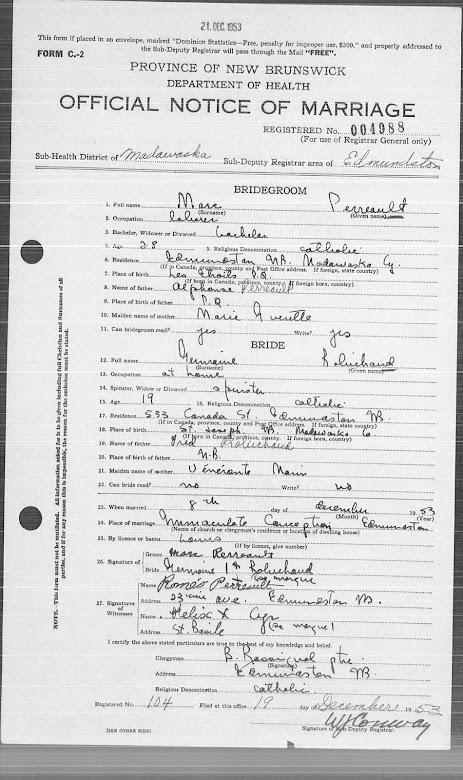 21. DEC. 1953
This form if placed in an envelope, marked "Dominion Statistics—Free, penalty for improper use, $300," and properly addressed
to the Sub-Deputy Registrar will pass through the Mail "FREE".
FORM C.-2
PROVINCE OF NEW BRUNSWICK
DEPARTMENT OF HEALTH
OFFICIAL NOTICE OF MARRIAGE
REGISTERED No. 004988
(For use of Registrar General only)
Sub-Health District of Madawaska Sub-Deputy Registrar area of Edmundston
BRIDEGROOM
1. Full name Marc Perreault
(Surname) (Given name)
2. Occupation laborer
3. Bachelor, Widower or Divorced bachelor
4. Age 28 5. Religious Denomination catholic
6. Residence Edmundston NB. Madawaska Cy.
(If in Canada, province, county and Post Office address. If foreign, state country)
7. Place of birth Les P.Q.
(If born in Canada, province, county. If foreign born, country)
8. Name of father Alphonse Perreault
9. Place of birth of father P.Q.
10. Maiden name of mother Marie
11. Can bridegroom read? yes Write? yes
BRIDE
12. Full name Germaine Robichaud
(Surname) (Given name)
13. Occupation at home
14. Spinster, Widow or Divorced spinster
15. Age 19 16. Religious Denomination catholic
17. Residence 533 Canada St. Edmundston NB.
(If in Canada, province, county and Post Office address. If foreign, state country)
18. Place of birth St. Joseph NB. Madawaska Co
(If born in Canada, province, county. If foreign born, country)
19. Name of father Fred Robichaud
20. Place of birth of father N.B.
21. Maiden name of mother Vénérante
22. Can bride read? no Write? no
23. When married 8th day of december 1953
(Month) (Year)
24. Place of marriage Immaculate Conception Edmunston
(Name of church or clergyman's residence or location of dwelling house)
25. By licence or banns banns
(If by licence, give number)
26. Signature of
Groom Marc Perreault
Bride Germaine Robichaud
(sa marque)
27. Signatures of Witnesses
Name Roméo Perreault
Address 23ième ave. Edmundston NB.
Name Félix X Cyr
Address St. Basile (sa marque)
I certify the above stated particulars are true to the best of my knowledge and belief.
Clergyman B. Rossignol ptre.
(Signature)
Address Edmunston NB
Religious Denomination catholic.
Registered No. 104 Filed at this office 19 day of December 1953
W Conway
Signature of Sub-Deputy Registrar.
[SEE OTHER SIDE]
NOTE. This form must not be mutilated. All information asked for must be given including full Christian and Surnames of all
parties, and if for any reason this is impossible, the reason for the omission must be stated.